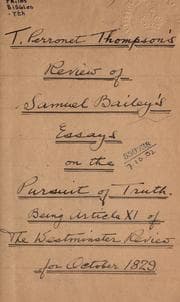 T. Perronet Thompson's
Review of
Samuel Bailey's
Essays
on the
Pursuit of Truth.
Being Article XI of
The Westminster Review
for October 1829